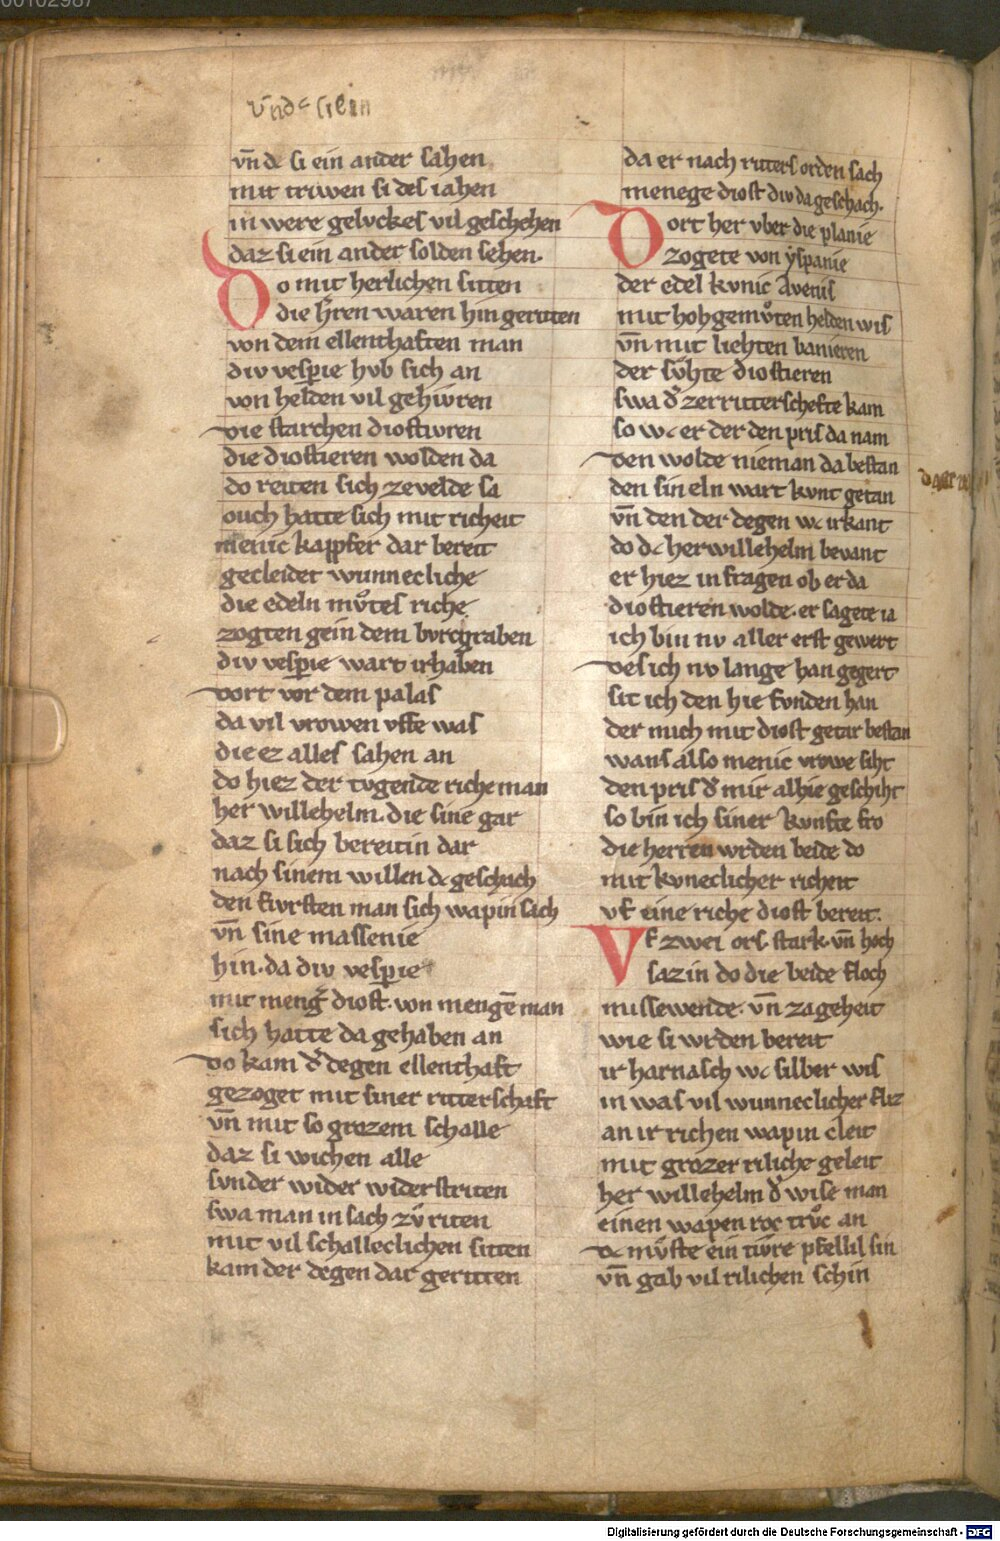 00102987
vnde sien
vn̄ dc si ein ander sahen
mit triwen si des iahen
in were geluckes vil geschehen
daz si ein ander solden sehen.
Do mit herlichen sitten
die h̄ren waren hin geritten
von dem ellenthaften man
div vesperie hvb sich an
von helden vil gehivren
die starchen diostivren
die diostieren wolden da
do reiten sich ze velde sa
ouch hatte sich mit richeit
menic kappfer dar bereit
gecleidet wunnecliche
die edeln mvͦtes riche
zogten gein dem bvrcgraben
div vesperie wart irhaben
dort vor dem palas
da vil vrowen vffe was
die ez alles sahen an
do hiez der tvgende riche man
her willehelm. die sine gar
daz si sich bereitin dar
nach sinem willen dc geschach
den fivrsten man sich wapin sach
vn̄ sine massenie
hin. da div vesperie
mit meng̾ diost. von mengē man
sich hatte da gehaben an
do kam d̾ degen ellenthaft
gezoget mit siner ritterschaft
vn̄ mit so grozem schalle
daz si wichen alle
svnder wider widerstriten
swa man in sach zv̊ riten
mit vil schalleclichen sitten
kam der degen dar geritten
da er nach ritters orden sach
menege diost div da geschach.
Dort her vber die planie
zogete von yspanie
der edel kvnic Avenis
mit hohgemvͦten helden wis
vn̄ mit liehten banieren
der svͦhte diostieren
swa d̾ ze ritterschefte kam
so wc er der den pris da nam
den wolde nieman da bestan
den sin eln wart kvnt getan
vn̄ den der degen wc irkant
do dc her willehelm bevant
er hiez in fragen ob er da
diostieren wolde. er sagete ia
ich bin nv aller erst gewert
des ich nv lange han gegert
sit ich den hie fvnden han
der mich mit diost getar bestan
wans also menic vrowe siht
den pris d̾ mir alhie geschiht
so bin ich siner kvnfte fro
die herren wrden beide do
mit kvneclicher richeit
vf eine riche diost bereit.
Vf zwei ors. stark. vn̄ hoch
saz in do die beide floch
missewende. vn̄ zageheit
wie si wrden bereit
ir harnasch wc silber wis
in was vil wunneclicher fliz
an ir richen wapin cleit
mit grozer riliche geleit
her willehelm d̾ wise man
einen wapen roc trvͦc an
dc mvͦste ein tivre pfellil sin
vn̄ gab vil rilichen schin
Digitalisierung gefördert durch die Deutsche Forschungsgemeinschaft - DFG